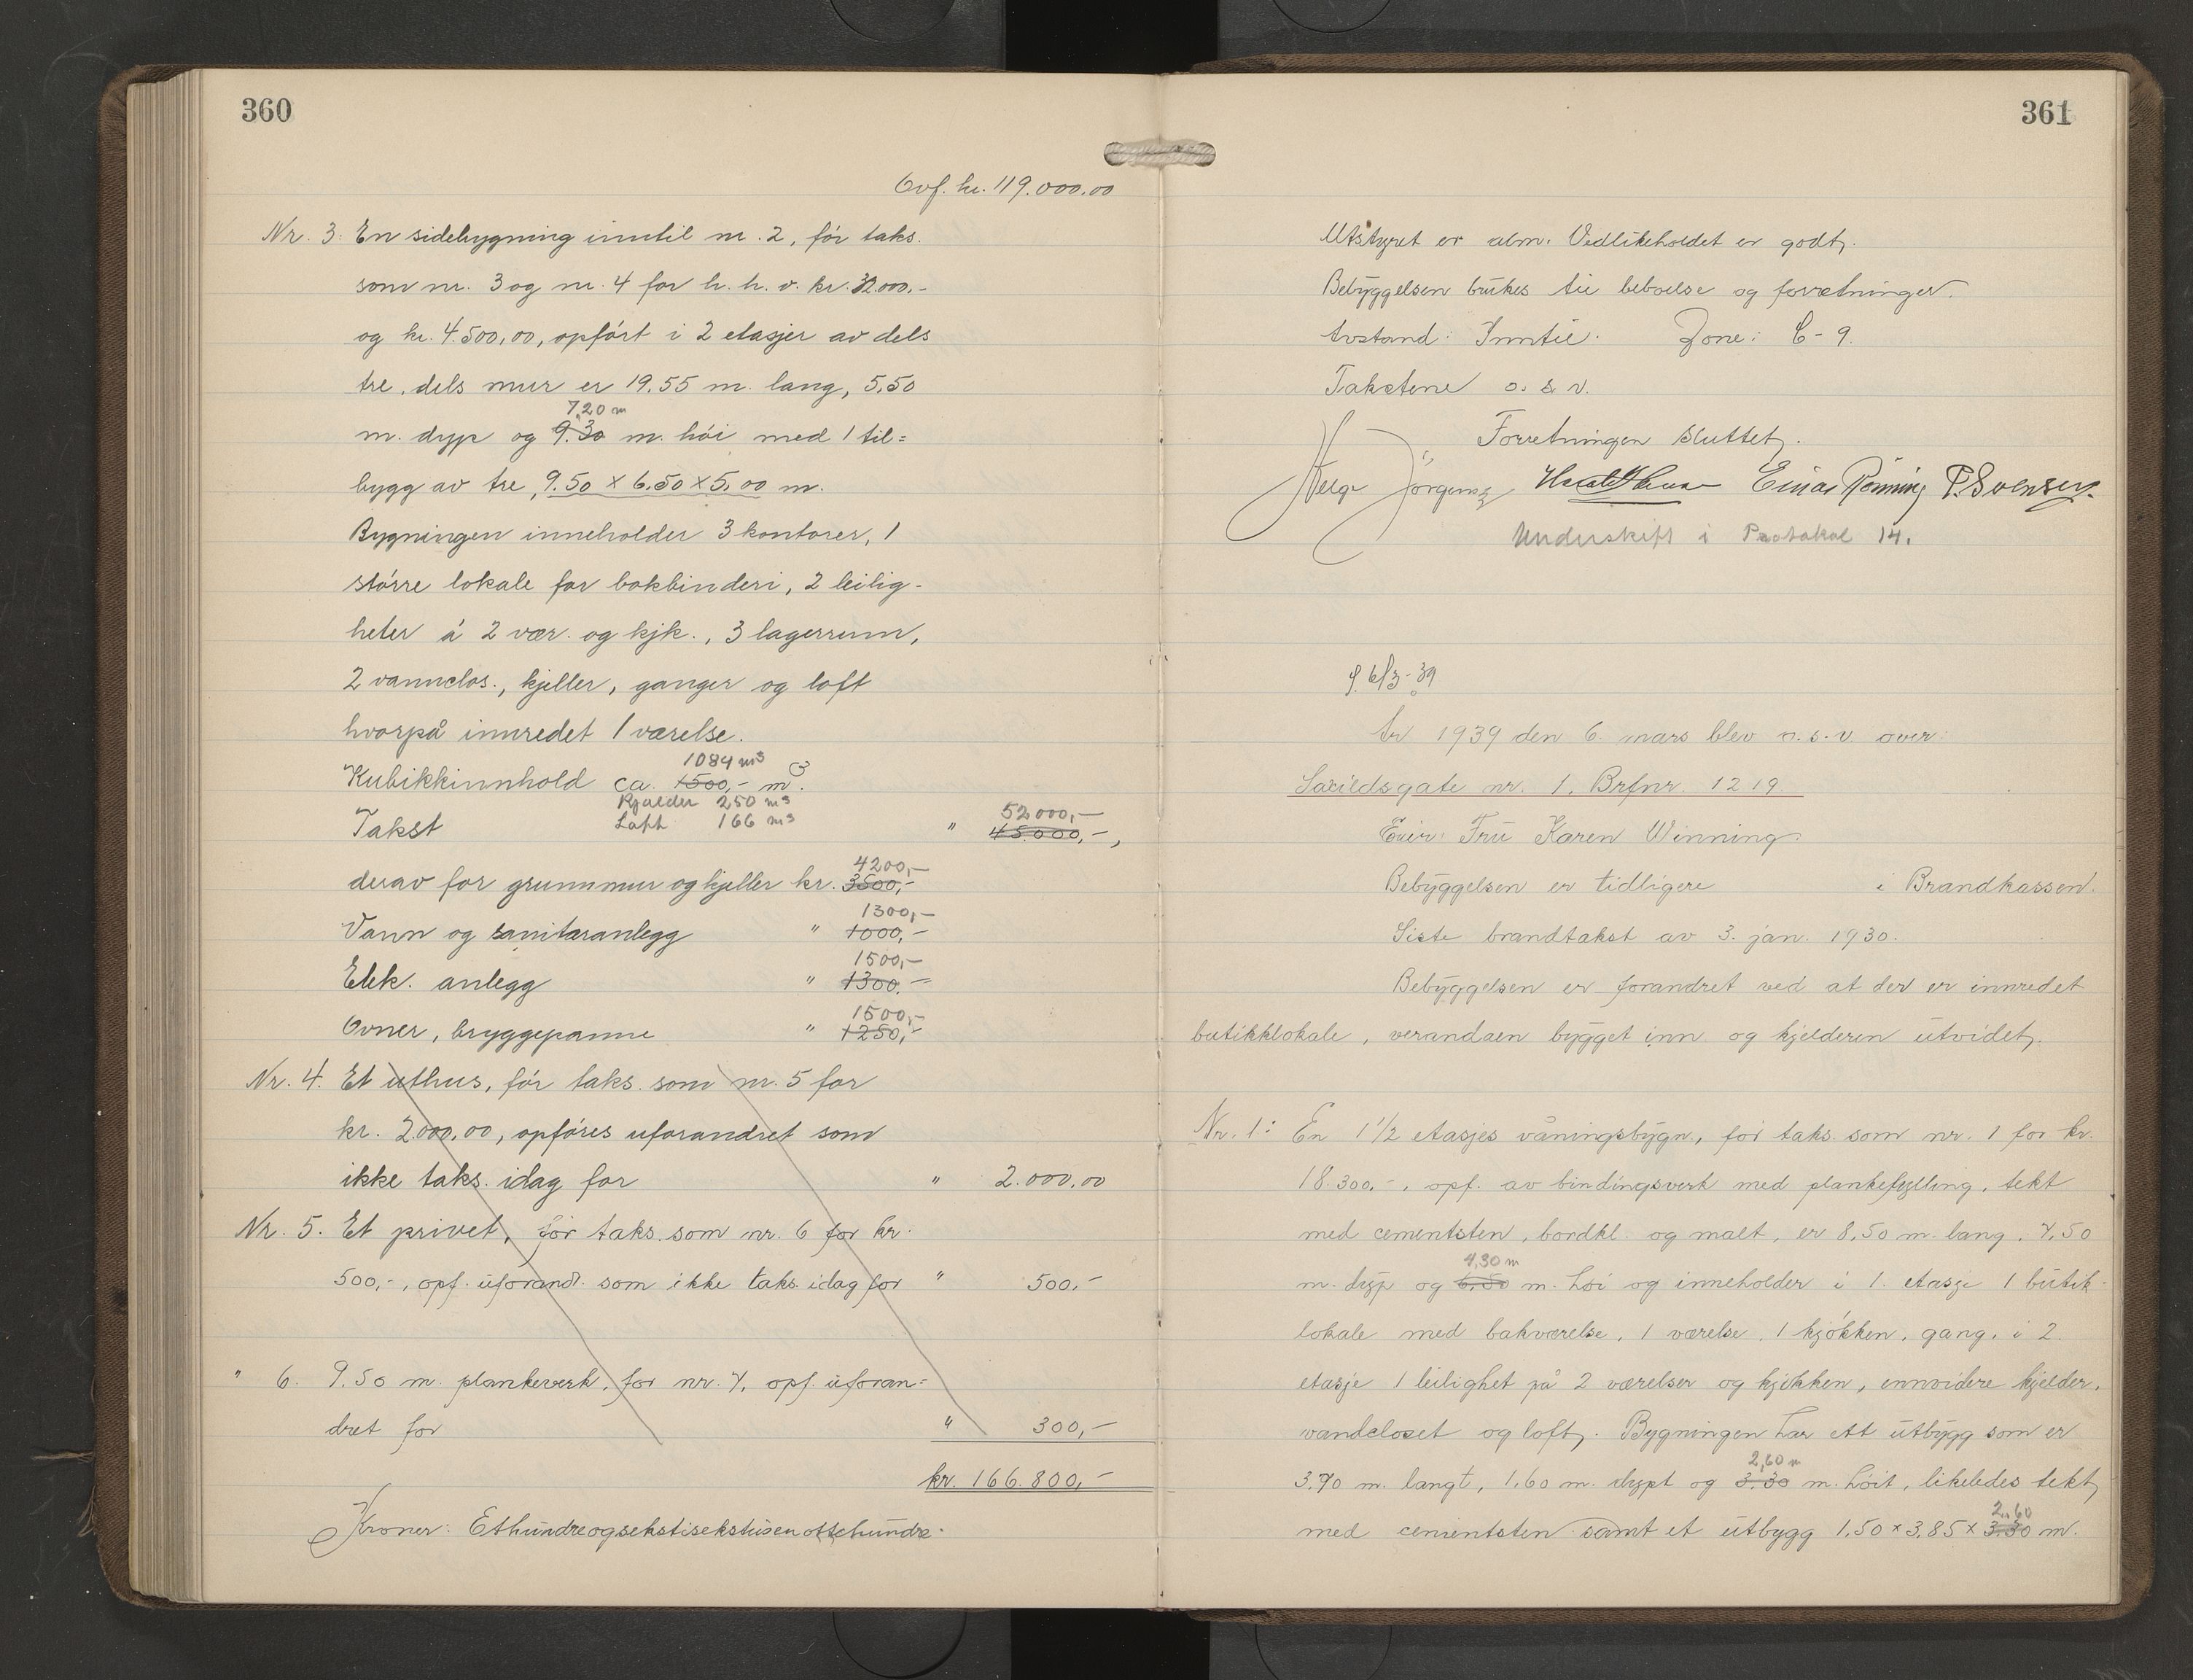 360
Ovf. kr. 119.000.00
Nr. 3: En sidebygning inntil nr. 2, før taks.
som nr. 3 og nr. 4 for h. h. v. kr. 32.000,-
og kr. 4.500,00, opført i 2 etasjer av dels
tre, dels mur er 19.55 m. lang, 5,50
7,20 m
m. dyp og 9.30 m. høi, med 1 til=
bygg av tre, 9.50 x 6.50 x 5,00 m.
Bygningen inneholder 3 kontorer, 1
større lokale for bokbinderi, 2 leilig-
heter á 2 vær. og kjk., 3 lagerrum,
2 vannclos., kjeller, ganger og loft
hvorpå innredet 1 værelse.
1084 m³
Kubikkinnhold ca. 1500,- m³.
Kjælder 250 m³
Loft 166 m³
52000,-
Takst " 45.000,-,
4200,-
derav for grunnmur og kjeller kr. 3500,-
1300,-
Vann og sanitæranlegg " 1000,-
1500,-
Elek. anlegg " 1300.-
1500,-
Ovner, bryggepanne " 1250,-
Nr. 4. Et uthus, før taks. som nr. 5 for
kr. 2000.00, opføres uforandret som
ikke taks. idag for " 2.000,00
Nr. 5. Et privet, før taks. som nr. 6 for kr.
500,-, opf. uforandr. som ikke taks. idag for " 500,-
" 6. 9.50 m. plankeverk, før nr. 7, opf. uforan-
dret for " 300,-
kr. 166.800,-
Kroner: Ethundreogsekstisekstusenottehundre-
361
Utstyret er alm. Vedlikeholdet er godt.
Bebyggelsen bukes til beboelse og forretninger.
Avstand: Inntil. Zone: C-9.
Takstene o. s. v.
Forretningen sluttet.
Helge Jörgens Einar Rönning P. Svensen.
Underskift i Protokol 14.
S. 6/3-39
År 1939 den 6. mars blev o.s.v. over:
Sarildsgate nr. 1, Brfnr. 1219.
Eier: Fru Karen Winning.
Bebyggelsen er tidligere i Brandkassen.
Siste brandtakst av 3. jan. 1930.
Bebyggelsen er forandret ved at der er innredet
butikklokale, verandaen bygget inn og kjelderen utvidet.
Nr. 1: En 1½ etasjes våningsbygn., før taks. som nr. 1 for kr.
18.300.-, opf. av bindingsverk med plankefylling, tekt
med cementsten, bordkl. og malt, er 8,50 m. lang, 7,50
4,30 m
m. dyp og 6,50 m. høi og inneholder i 1. etasje 1 butik-
lokale med bakværelse, 1 værelse, 1 kjøkken, gang, i 2.
etasje 1 leilighet på 2 værelser og kjøkken, ennvidere kjelder,
vandcloset og loft. Bygningen har ett utbygg som er
2,60 m
3.70 m. langt, 1.60 m. dypt og 3.30 m. høit, likeledes tekt
2,60
med cementsten samt et utbygg 1.50 x 3.85 x 3.30 m.